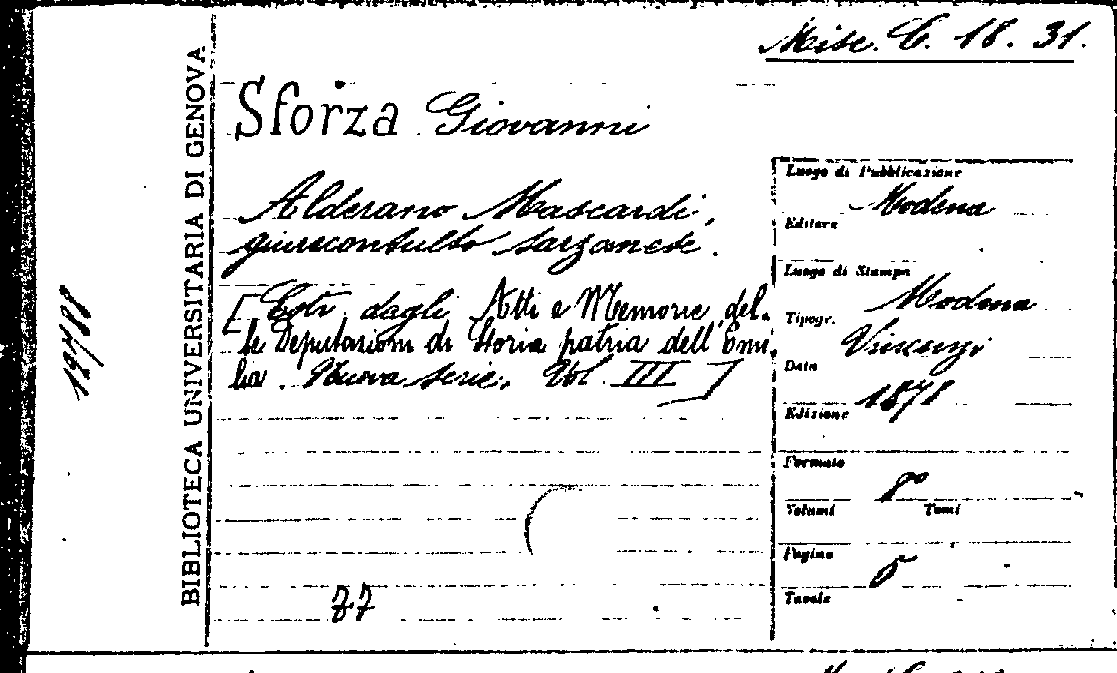 Misc. C. 18. 31.
BIBLIOTECA UNIVERSITARIA DI GENOVA
Sforza Giovanni
Alderano Mascardi,
giureconsulto sarzanese.
[Estr. dagli Atti e Memorie del-
le Deputazioni di Storia patria dell'Emi-
lia. Nuova serie, Vol. III]
77
Luogo di Pubblicazione
Modena
Editore
Luogo di Stampa
Modena
Tipogr.
Vincenzi
Data
1878
Edizione
Formato
8°
Volumi Tomi
Pagine
5
Tavole